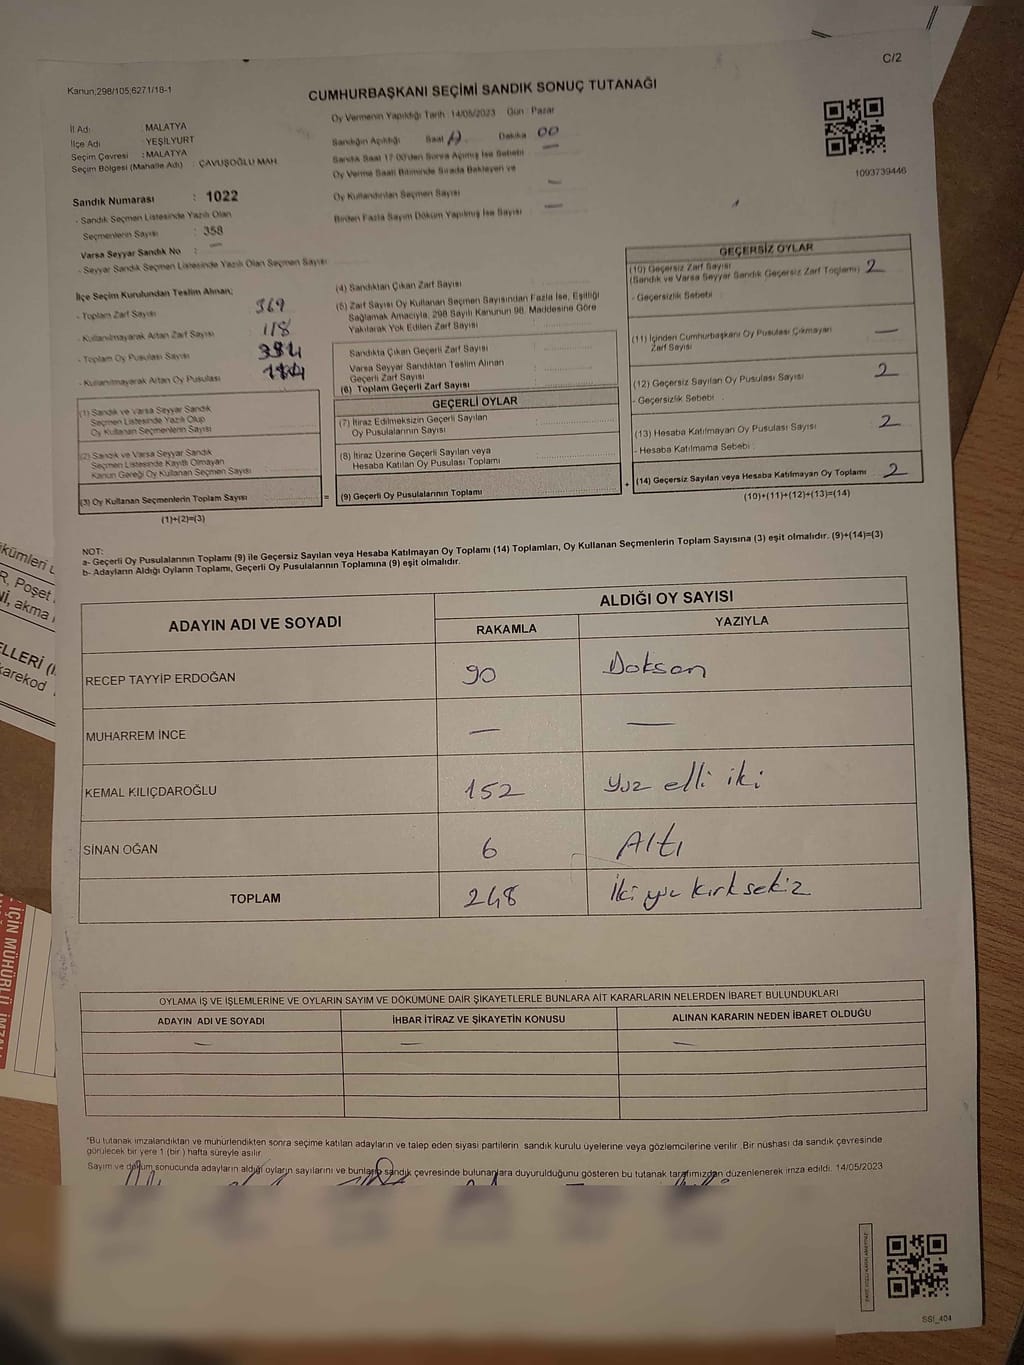 C/2
Kanun;298/105;6271/18-1
CUMHURBAŞKANI SEÇİMİ SANDIK SONUÇ TUTANAĞI
Oy Vermenin Yapıldığı Tarih : 14/05/2023 Gün : Pazar
İl Adı : MALATYA
İlçe Adı : YEŞİLYURT
Seçim Çevresi : MALATYA
Seçim Bölgesi (Mahalle Adı) : ÇAVUŞOĞLU MAH
Sandığın Açıldığı Saat Dakika 00
Sandık Saat 17:00'den Sonra Açılmış İse Sebebi —
Oy Verme Saati Bitiminde Sırada Bekleyen ve
Oy Kullandırılan Seçmen Sayısı —
Birden Fazla Sayım Döküm Yapılmış İse Sayısı —
1093739446
Sandık Numarası : 1022
- Sandık Seçmen Listesinde Yazılı Olan
Seçmenlerin Sayısı : 358
Varsa Seyyar Sandık No : —
- Seyyar Sandık Seçmen Listesinde Yazılı Olan Seçmen Sayısı
İlçe Seçim Kurulundan Teslim Alınan;
- Toplam Zarf Sayısı 369
- Kullanılmayarak Artan Zarf Sayısı 118
- Toplam Oy Pusulası Sayısı
- Kullanılmayarak Artan Oy Pusulası
(1) Sandık ve Varsa Seyyar Sandık
Seçmen Listesinde Yazılı Olup
Oy Kullanan Seçmenlerin Sayısı
(2) Sandık ve Varsa Seyyar Sandık
Seçmen Listesinde Kayıtlı Olmayan
Kanun Gereği Oy Kullanan Seçmen Sayısı
(3) Oy Kullanan Seçmenlerin Toplam Sayısı =
(1)+(2)=(3)
(4) Sandıktan Çıkan Zarf Sayısı :
(5) Zarf Sayısı Oy Kullanan Seçmen Sayısından Fazla İse, Eşitliği
Sağlamak Amacıyla, 298 Sayılı Kanunun 98. Maddesine Göre
Yakılarak Yok Edilen Zarf Sayısı :
Sandıkta Çıkan Geçerli Zarf Sayısı :
Varsa Seyyar Sandıktan Teslim Alınan
Geçerli Zarf Sayısı :
(6) Toplam Geçerli Zarf Sayısı :
GEÇERLİ OYLAR
(7) İtiraz Edilmeksizin Geçerli Sayılan
Oy Pusulalarının Sayısı
(8) İtiraz Üzerine Geçerli Sayılan veya
Hesaba Katılan Oy Pusulası Toplamı
(9) Geçerli Oy Pusulalarının Toplamı +
GEÇERSİZ OYLAR
(10) Geçersiz Zarf Sayısı
(Sandık ve Varsa Seyyar Sandık Geçersiz Zarf Toplamı) 2
- Geçersizlik Sebebi :
(11) İçinden Cumhurbaşkanı Oy Pusulası Çıkmayan
Zarf Sayısı —
(12) Geçersiz Sayılan Oy Pusulası Sayısı 2
- Geçersizlik Sebebi :
(13) Hesaba Katılmayan Oy Pusulası Sayısı 2
- Hesaba Katılmama Sebebi :
(14) Geçersiz Sayılan veya Hesaba Katılmayan Oy Toplamı 2
(10)+(11)+(12)+(13)=(14)
NOT:
a- Geçerli Oy Pusulalarının Toplamı (9) ile Geçersiz Sayılan veya Hesaba Katılmayan Oy Toplamı (14) Toplamları, Oy Kullanan Seçmenlerin Toplam Sayısına (3) eşit olmalıdır. (9)+(14)=(3)
b- Adayların Aldığı Oyların Toplamı, Geçerli Oy Pusulalarının Toplamına (9) eşit olmalıdır.
ADAYIN ADI VE SOYADI ALDIĞI OY SAYISI
RAKAMLA YAZIYLA
RECEP TAYYİP ERDOĞAN 90 Doksan
MUHARREM İNCE — —
KEMAL KILIÇDAROĞLU 152 Yüz elli iki
SİNAN OĞAN 6 Altı
TOPLAM 248 İki yüz kırk sekiz
OYLAMA İŞ VE İŞLEMLERİNE VE OYLARIN SAYIM VE DÖKÜMÜNE DAİR ŞİKAYETLERLE BUNLARA AİT KARARLARIN NELERDEN İBARET BULUNDUKLARI
ADAYIN ADI VE SOYADI İHBAR İTİRAZ VE ŞİKAYETİN KONUSU ALINAN KARARIN NEDEN İBARET OLDUĞU
— — —
*Bu tutanak imzalandıktan ve mühürlendikten sonra seçime katılan adayların ve talep eden siyasi partilerin sandık kurulu üyelerine veya gözlemcilerine verilir .Bir nüshası da sandık çevresinde
görülecek bir yere 1 (bir ) hafta süreyle asılır.
Sayım ve döküm sonucunda adayların aldığı oyların sayılarını ve bunların sandık çevresinde bulunanlara duyurulduğunu gösteren bu tutanak tarafımızdan düzenlenerek imza edildi. 14/05/2023
SSI_404
R, Poşet
akma
ELLERİ
karekod
İÇİN MÜHÜRLÜ,